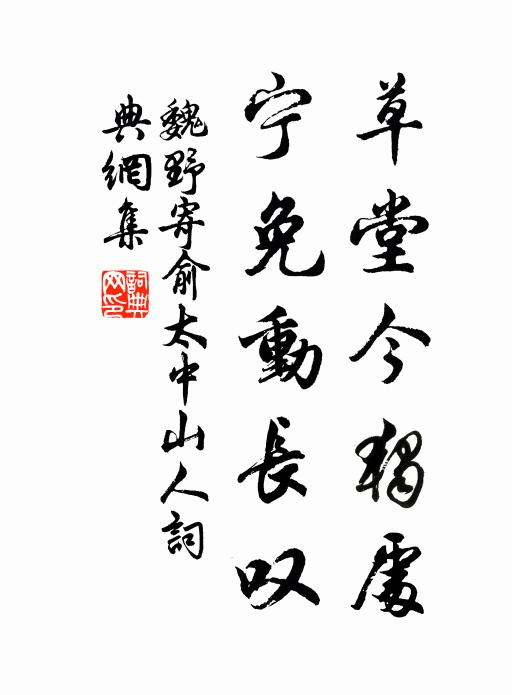 草堂今獨處
宁免動長叹
魏野寄俞太中山人詞
典網集
詞典
网印